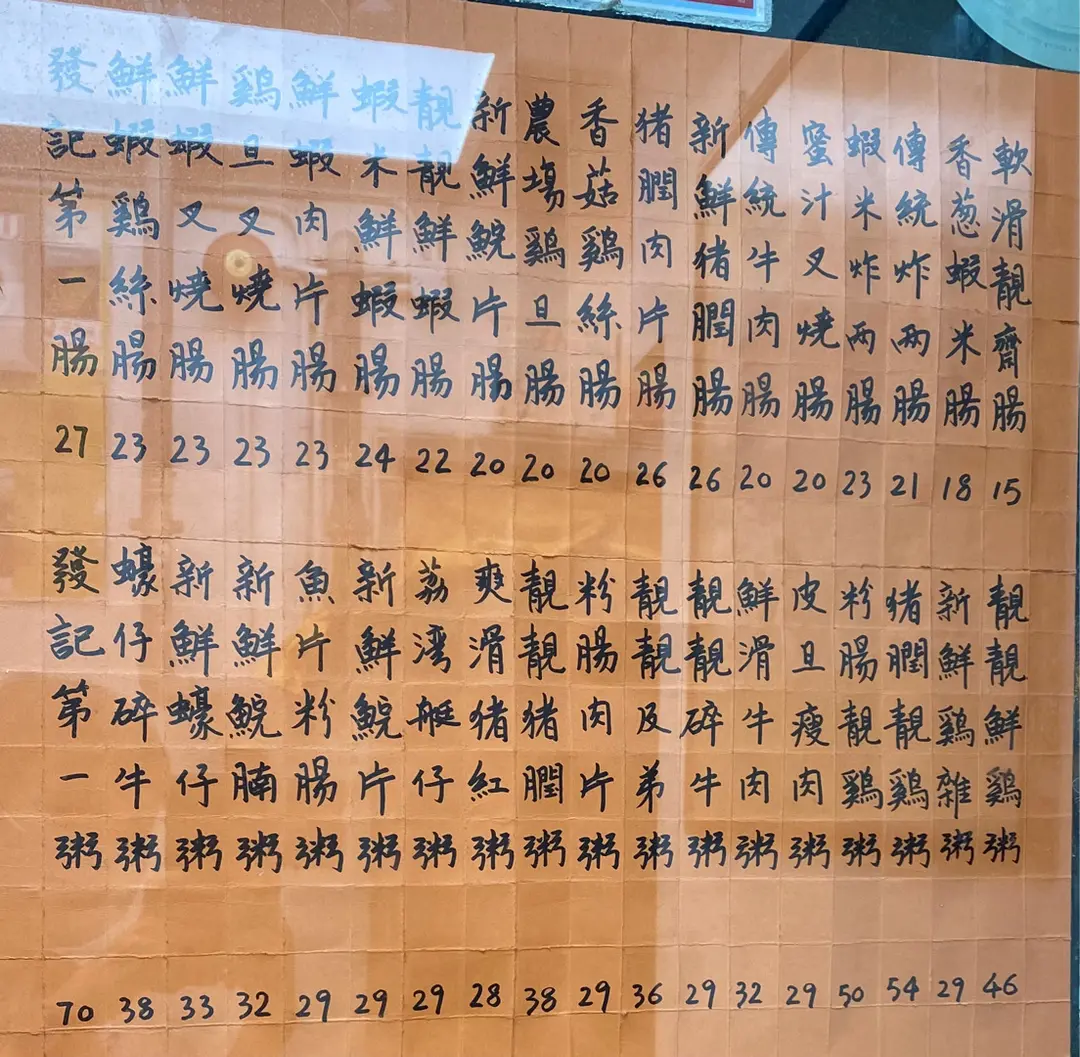 軟滑靚齋腸 15
香葱蝦米腸 18
傳統炸両腸 21
蝦米炸両腸 23
蜜汁叉燒腸 20
傳統牛肉腸 20
新鮮猪膶腸 26
猪膶肉片腸 26
香菇鷄絲腸 20
農塲鷄旦腸 20
新鮮鯇片腸 20
靚靚鮮蝦腸 22
蝦米鮮蝦腸 24
鮮蝦肉片腸 23
鷄旦叉燒腸 23
鮮蝦叉燒腸 23
鮮蝦鷄絲腸 23
發記第一腸 27
靚靚鮮鷄粥 46
新鮮鷄雜粥 29
猪膶靚鷄粥 54
粉腸靚鷄粥 50
皮旦瘦肉粥 29
鮮滑牛肉粥 32
靚靚碎牛粥 29
靚靚及弟粥 36
粉腸肉片粥 29
靚靚猪膶粥 38
爽滑猪紅粥 28
荔湾艇仔粥 29
新鮮鯇片粥 29
魚片粉腸粥 29
新鮮鯇腩粥 32
新鮮蠔仔粥 33
蠔仔碎牛粥 38
發記第一粥 70